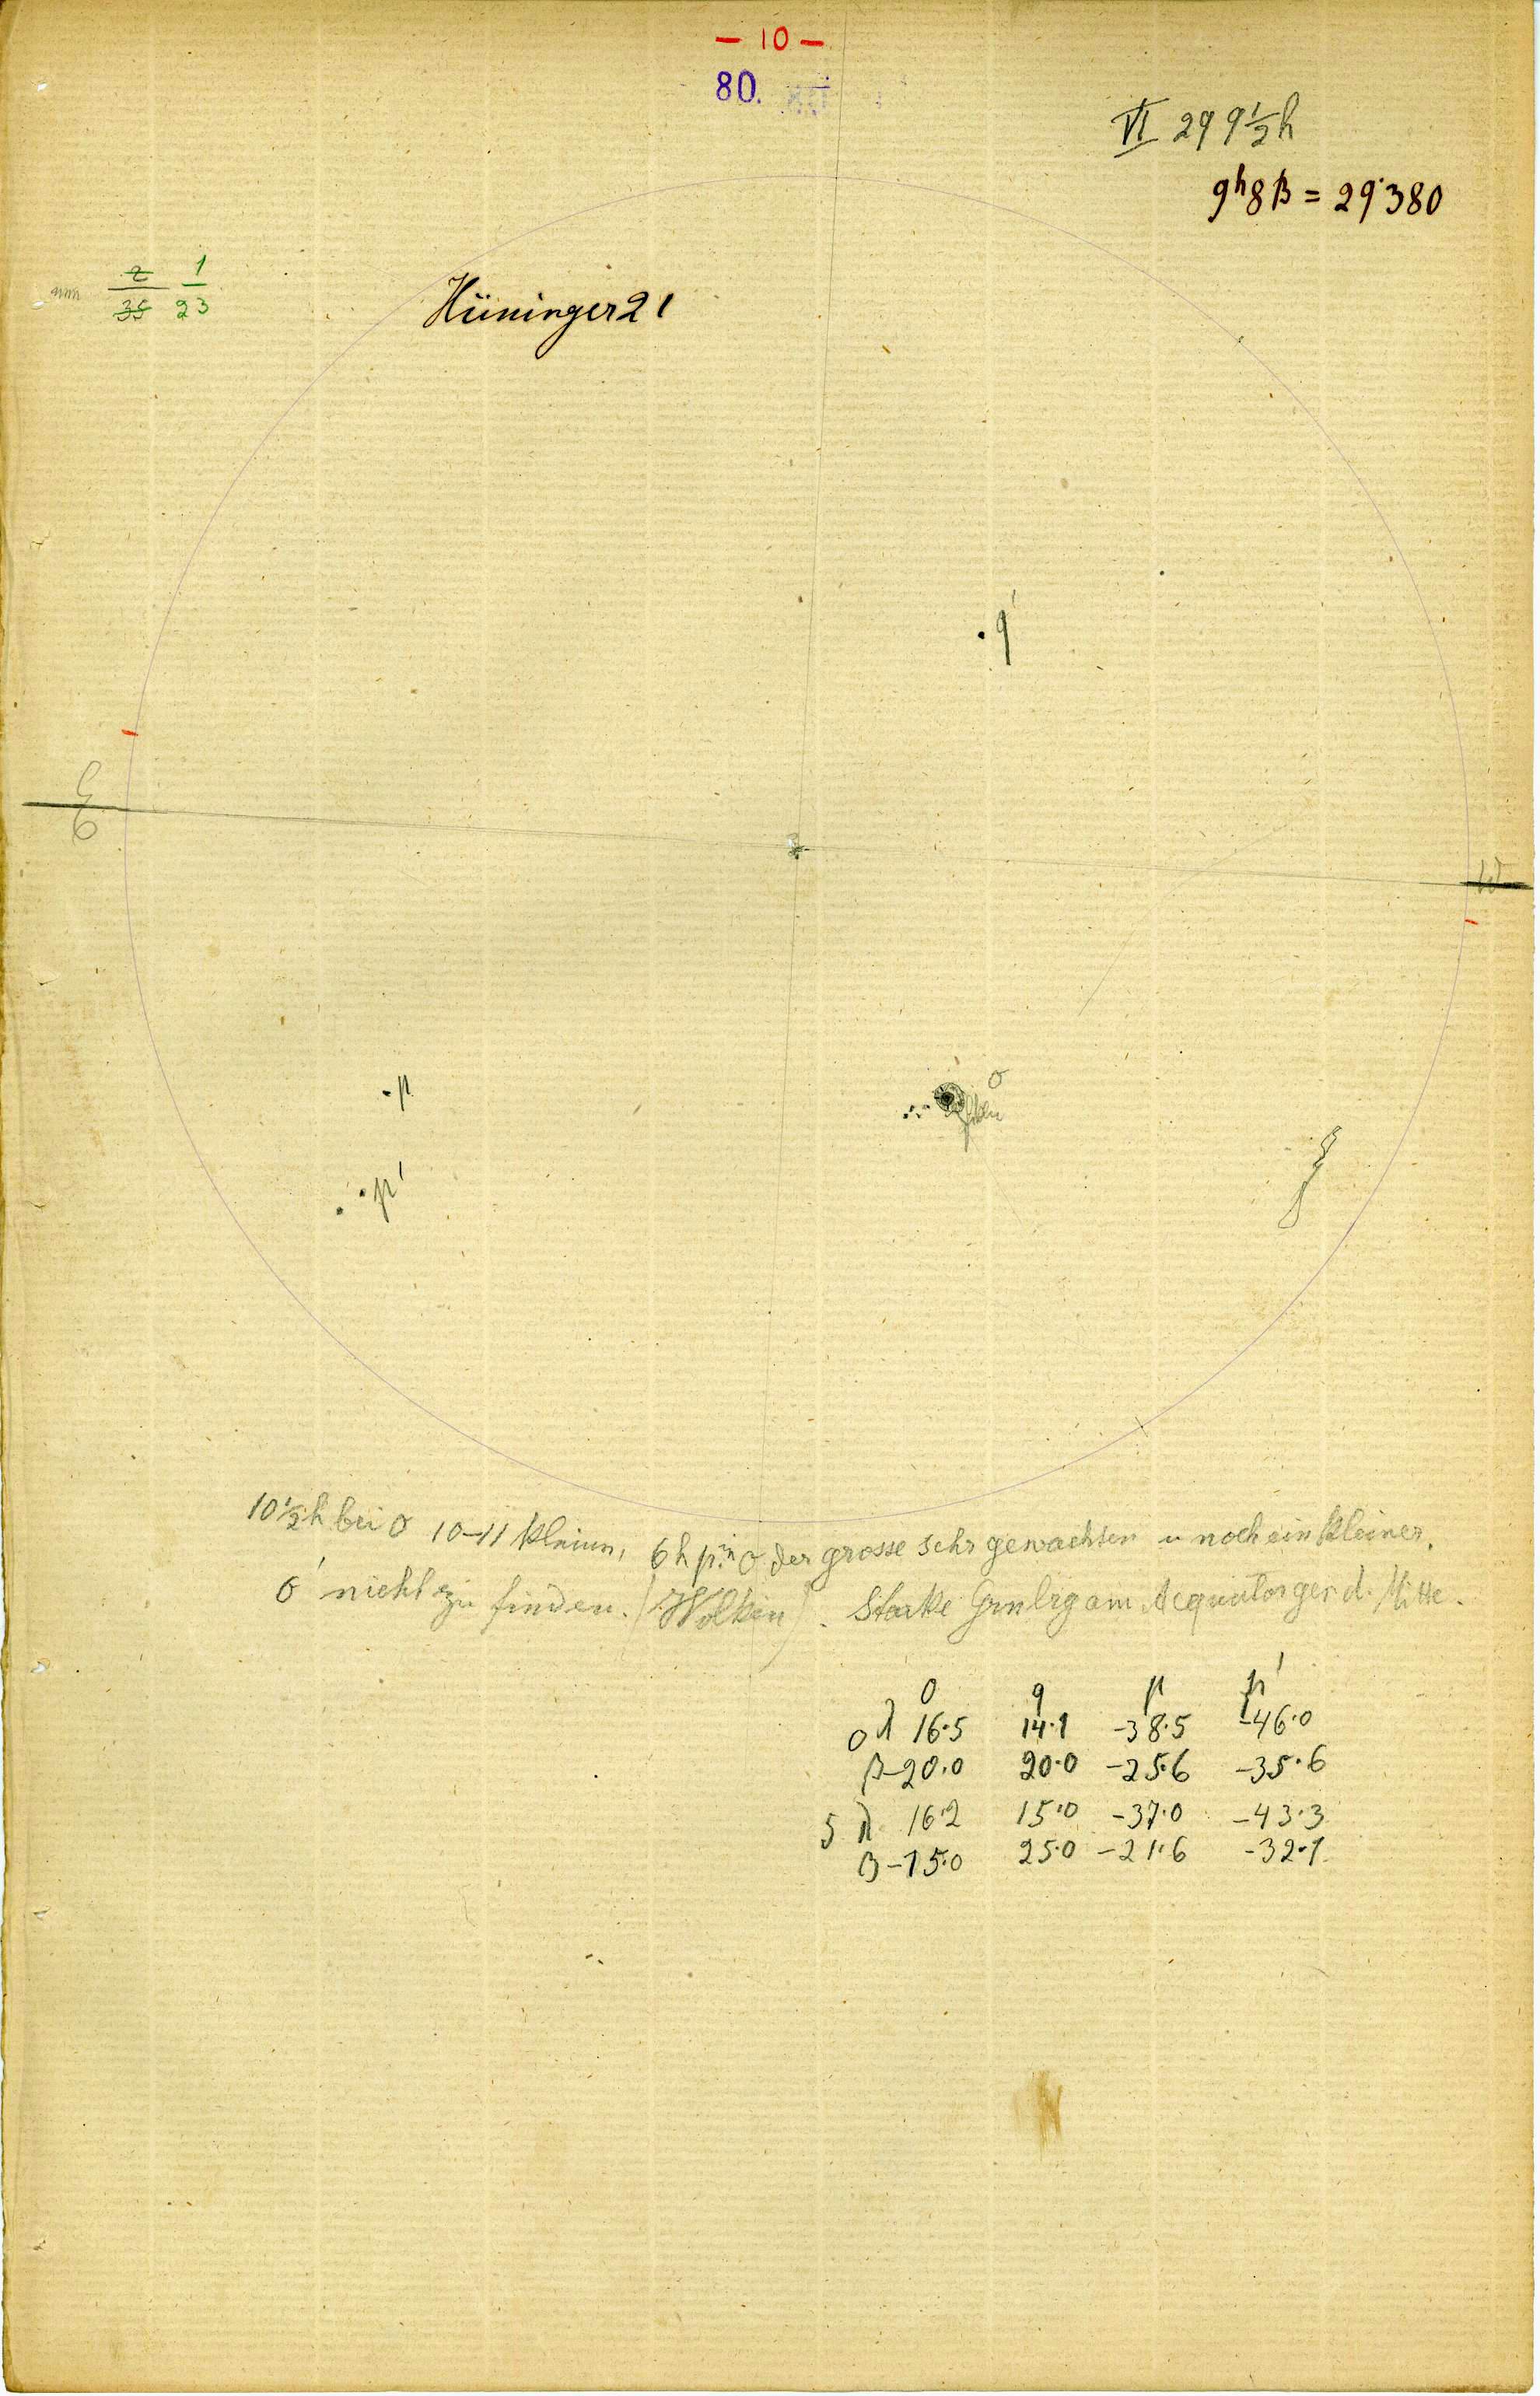 – 10 –
80.
VI 29 9½h
9h8β = 29·380
2 1
35 23
Hüninger 21
q'
W
p
o
p'
10½h bei o 10–11 kleine, 6h p.m o der grosse sehr gewachsen u noch ein kleiner.
o' nicht zu finden. (Wolken). Starke am Aequator geg d. Mitte.
o q p p'
0 λ 16·5 14·1 -38·5 -46·0
β -20·0 20·0 -25·6 -35·6
5 λ 16·2 15·0 -37·0 -43·3
β -15·0 25·0 -21·6 -32·1